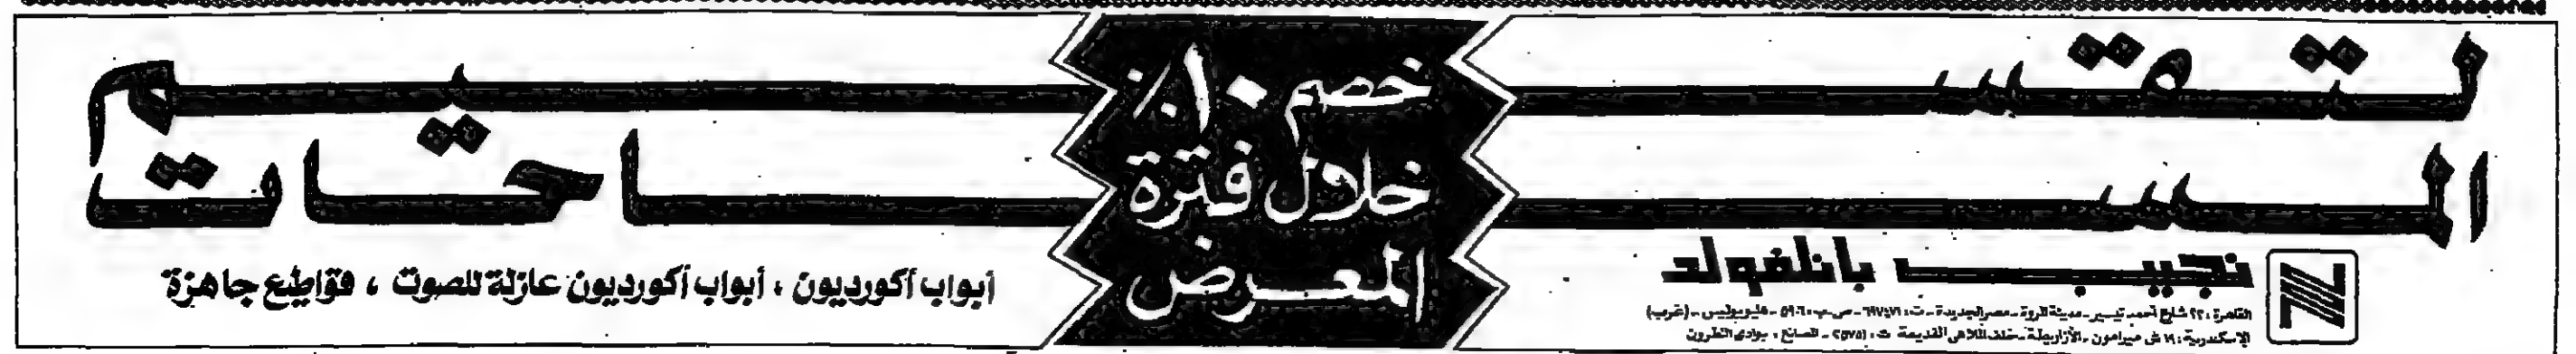 لتقسيم
المساحات
خصم ١٠٪
خلال فترة
المعرض
نجيب بانلفولد
القاهرة : ٢٢ شارع أحمد تيسير - مدينة المروة - مصر الجديدة - ت : - ص.ب : ٥٩٦٠ - هليوبوليس - (غرب)
الإسكندرية : ١٩ ش ميرامون - الأزاريطة - خلف الملاهى القديمة ت : - المصانع : بوادى النطرون
أبواب أكورديون ، أبواب أكورديون عازلة للصوت ، قواطيع جاهزة